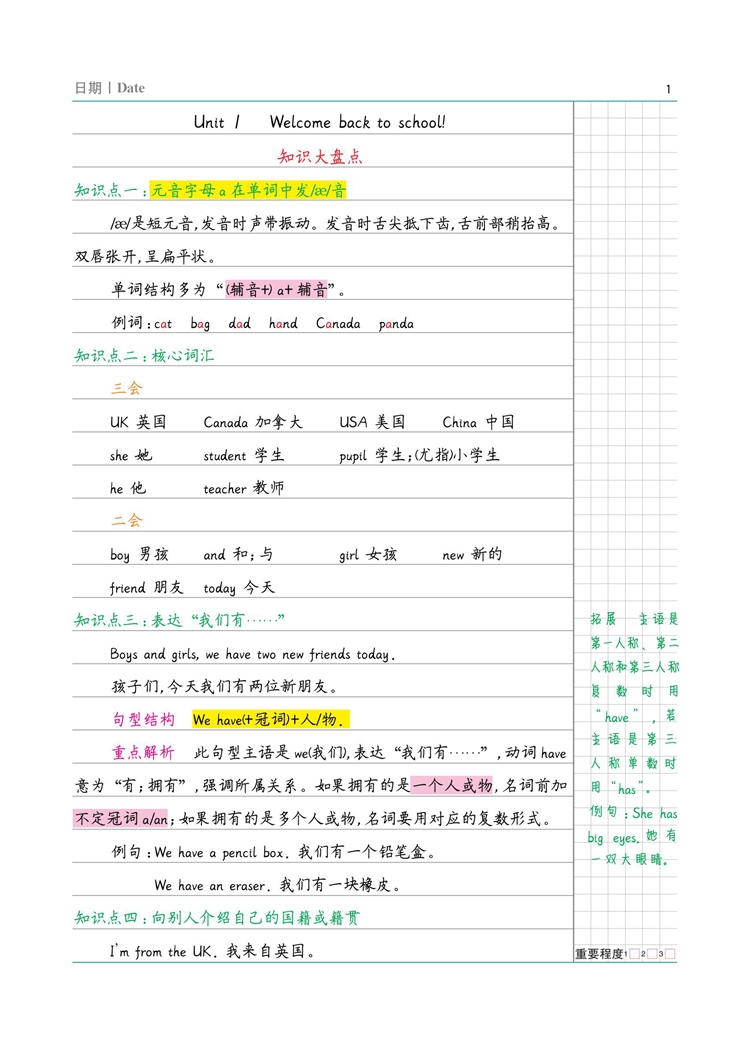 日期 | Date
1
Unit 1 Welcome back to school!
知识大盘点
知识点一:元音字母 a 在单词中发/æ/音
/æ/是短元音,发音时声带振动。发音时舌尖抵下齿,舌前部稍抬高。
双唇张开,呈扁平状。
单词结构多为“(辅音+) a+ 辅音”。
例词:cat bag dad hand Canada panda
知识点二:核心词汇
三会
UK 英国 Canada 加拿大 USA 美国 China 中国
she 她 student 学生 pupil 学生;(尤指)小学生
he 他 teacher 教师
二会
boy 男孩 and 和;与 girl 女孩 new 新的
friend 朋友 today 今天
知识点三:表达“我们有……”
Boys and girls, we have two new friends today.
孩子们,今天我们有两位新朋友。
句型结构 We have(+冠词)+人/物.
重点解析 此句型主语是 we(我们),表达“我们有……”,动词 have
意为“有;拥有”,强调所属关系。如果拥有的是一个人或物,名词前加
不定冠词 a/an;如果拥有的是多个人或物,名词要用对应的复数形式。
例句:We have a pencil box. 我们有一个铅笔盒。
We have an eraser. 我们有一块橡皮。
知识点四:向别人介绍自己的国籍或籍贯
I'm from the UK. 我来自英国。
拓展 主语是
第一人称、第二
人称和第三人称
复数时用
“have”,若
主语是第三
人称单数时
用“has”。
例句:She has
big eyes. 她有
一双大眼睛。
重要程度 1 □ 2 □ 3 □